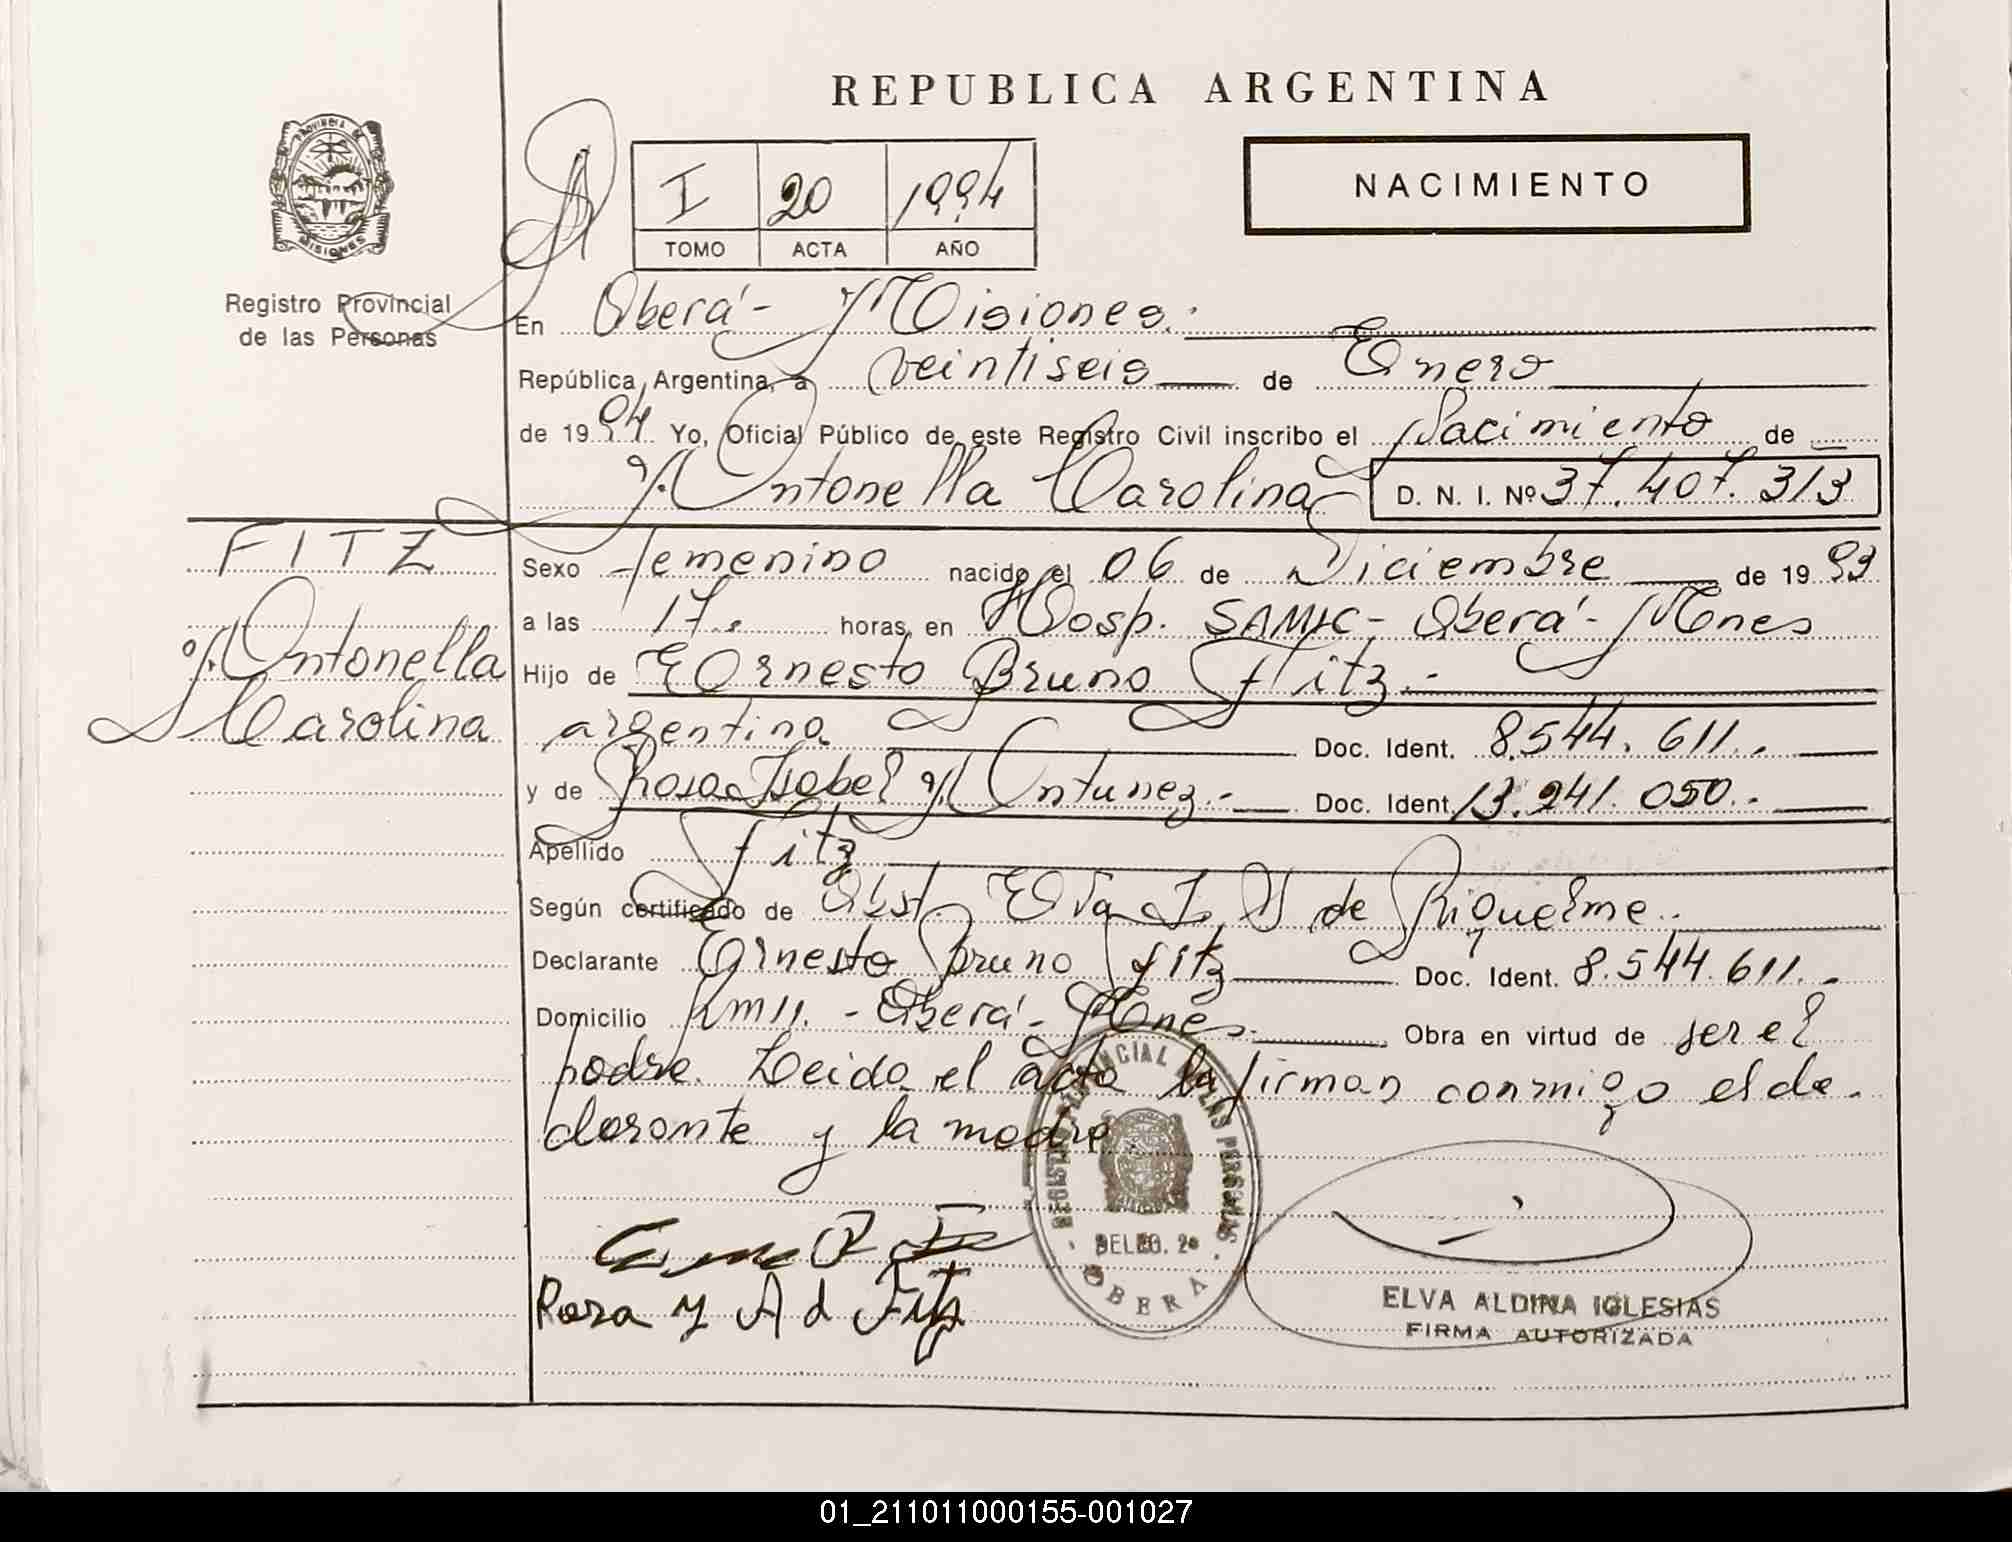 REPUBLICA ARGENTINA
PROVINCIA DE
MISIONES
Registro Provincial
de las Personas
I 20 1994
TOMO ACTA AÑO
NACIMIENTO
En Oberá - Misiones.-
República Argentina, a veintiseis de Enero
de 1994 Yo, Oficial Público de este Registro Civil inscribo el Nacimiento de
Antonella Carolina D. N. I. Nº 37.407.313
FITZ
Antonella
Carolina
Sexo femenino nacido el 06 de Diciembre de 1993
a las 17.. horas, en Hosp. SAMIC - Oberá - Mnes
Hijo de Ernesto Bruno Fitz.-
argentina Doc. Ident. 8.544.611..
y de Rosa Isabel Antunez.- Doc. Ident. 13.241.050.-
Apellido Fitz
Según certificado de Obst. Elva I. de Riquelme..
Declarante Ernesto Bruno Fitz Doc. Ident. 8.544.611.-
Domicilio Km 11. - Oberá - Mnes. Obra en virtud de ser el
padre. Leida el acta la firman conmigo el de.
clarante y la madre.
REGISTRO PROVINCIAL DE LAS PERSONAS
DELEG. 2ª
OBERA
Rosa y A d Fitz
ELVA ALDINA IGLESIAS
FIRMA AUTORIZADA
01_211011000155-001027